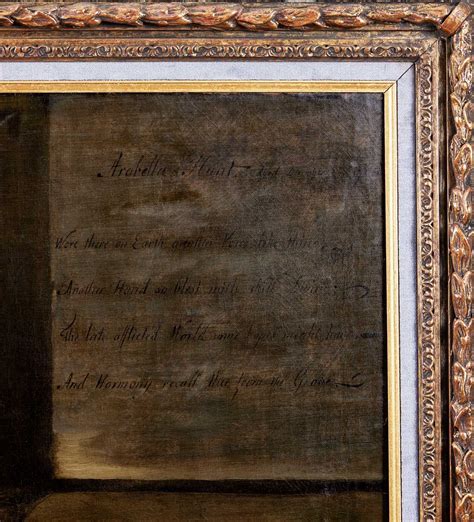 Arabella Hunt
Were there on Earth another Voice like thine
Another Hand so blest with skill
The late afflicted World some hopes might have
And Harmony recall thee from the Grave